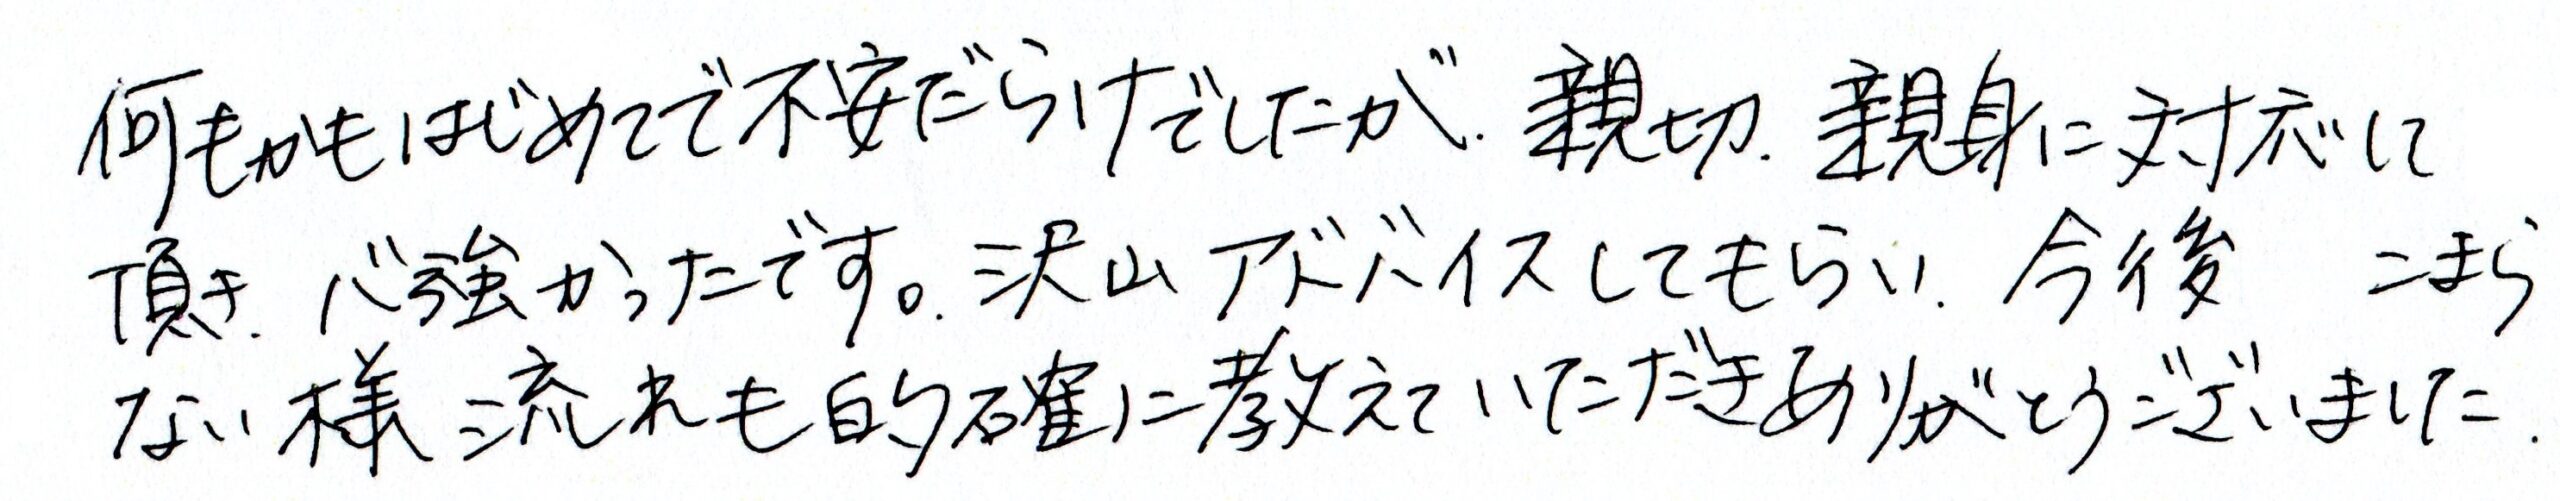 何もかもはじめてで不安だらけでしたが、親切、親身に対応して
頂き、心強かったです。沢山アドバイスしてもらい、今後 こまら
ない様 流れも的確に教えていただきありがとうございました。